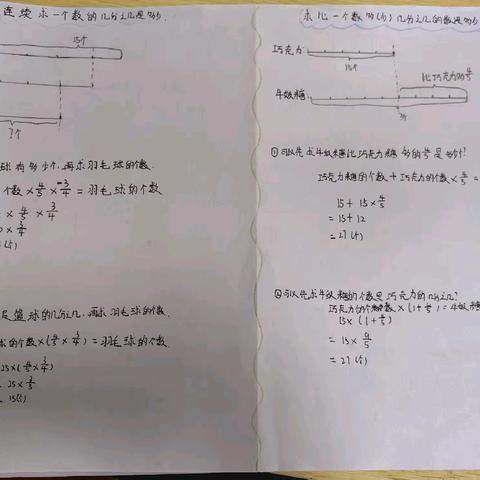 连续求一个数的几分之几是多少.
25个
?个
球有多少个,再求羽毛球的个数.
个数×4/5×3/4=羽毛球的个数
×4/5×3/4
×3/4
是篮球的几分之几,再求羽毛球的个数.
球的个数×(4/5×3/4)=羽毛球的个数.
25×(4/5×3/4)
=25×3/5
=15(个)
求比一个数多(少)几分之几的数是多少
巧克力:
15个
比巧克力多4/5
牛奶糖:
?个
①可以先求牛奶糖比巧克力糖多的4/5是多少个?
巧克力糖的个数+巧克力的个数×4/5=
15+15×4/5
=15+12
=27(个)
②可以先求牛奶糖的个数是巧克力的几分之几?
巧克力的个数×(1+4/5)=牛奶糖
15×(1+4/5)
=15×9/5
=27(个)